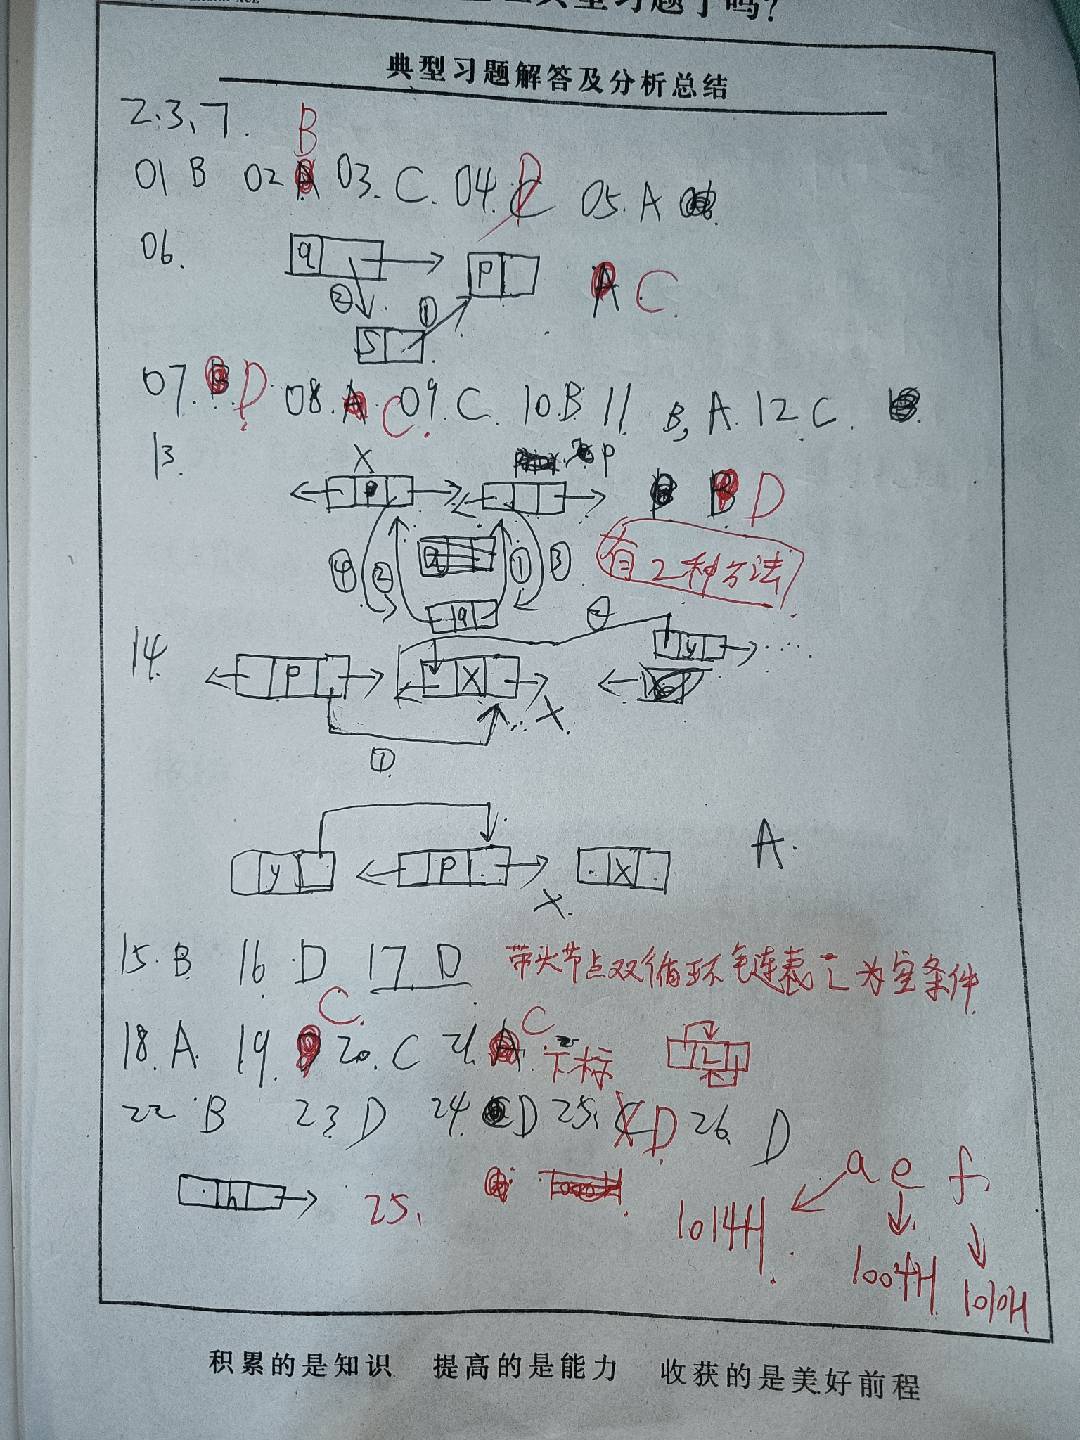 典型习题了吗?
典型习题解答及分析总结
2.3.7.
B
01 B 02 03. C. 04. D 05. A
06.
q P A C
② ①
S
07. D 08. A C. 09. C. 10. B 11. B, A. 12. C.
13.
X P B D
④ ② ① ③ 有2种方法
q
14. P X y
②
X.
①
y P X A.
X.
15. B 16. D 17 D 带头节点双循环链表L为空条件
18. A. 19. C. 20. C 21. A. C 下标 L
22 B 23. D 24. D 25. C D 26. D
h 25. a e f.
1014H. 1004H 1010H
积累的是知识 提高的是能力 收获的是美好前程